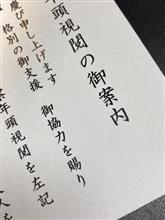 年頭視閲の御案内
慶び申し上げます
格別の御支援 御協力を賜り
年頭視閲を左記